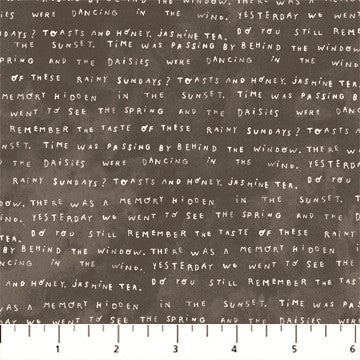 WERE DANCING IN THE WIND. YESTERDAY WE WENT
DAYS? TOASTS AND HONEY, JASMINE TEA. DO YOU STILL REMEM
THE SUNSET. TIME WAS PASSING BY BEHIND THE WINDOW.
PRING AND THE DAISIES WERE DANCING IN THE WIND.
OF THESE RAINY SUNDAYS? TOASTS AND HONEY, JASMINE TEA.
MEMORY HIDDEN IN THE SUNSET. TIME WAS PASSING
WENT TO SEE THE SPRING AND THE DAISIES WERE
REMEMBER THE TASTE OF THESE RAINY SUNDAYS? TOASTS
NSET. TIME WAS PASSING BY BEHIND THE WINDOW. THERE WAS A
THE DAISIES WERE DANCING IN THE WIND.
RAINY SUNDAYS? TOASTS AND HONEY, JASMINE TEA. DO YOU
DOW. THERE WAS A MEMORY HIDDEN IN THE SUNSET. T
WIND. YESTERDAY WE WENT TO SEE THE SPRING AND THE
TEA. DO YOU STILL REMEMBER THE TASTE OF THESE RAINY
BY BEHIND THE WINDOW. THERE WAS A MEMORY HIDDEN
NCING IN THE WIND. YESTERDAY WE WENT TO SEE
AND HONEY, JASMINE TEA. DO YOU STILL REMEMBER THE TAST
WAS A MEMORY HIDDEN IN THE SUNSET. TIME WAS P
AY WE WENT TO SEE THE SPRING AND THE DAISIES
1 2 3 4 5 6